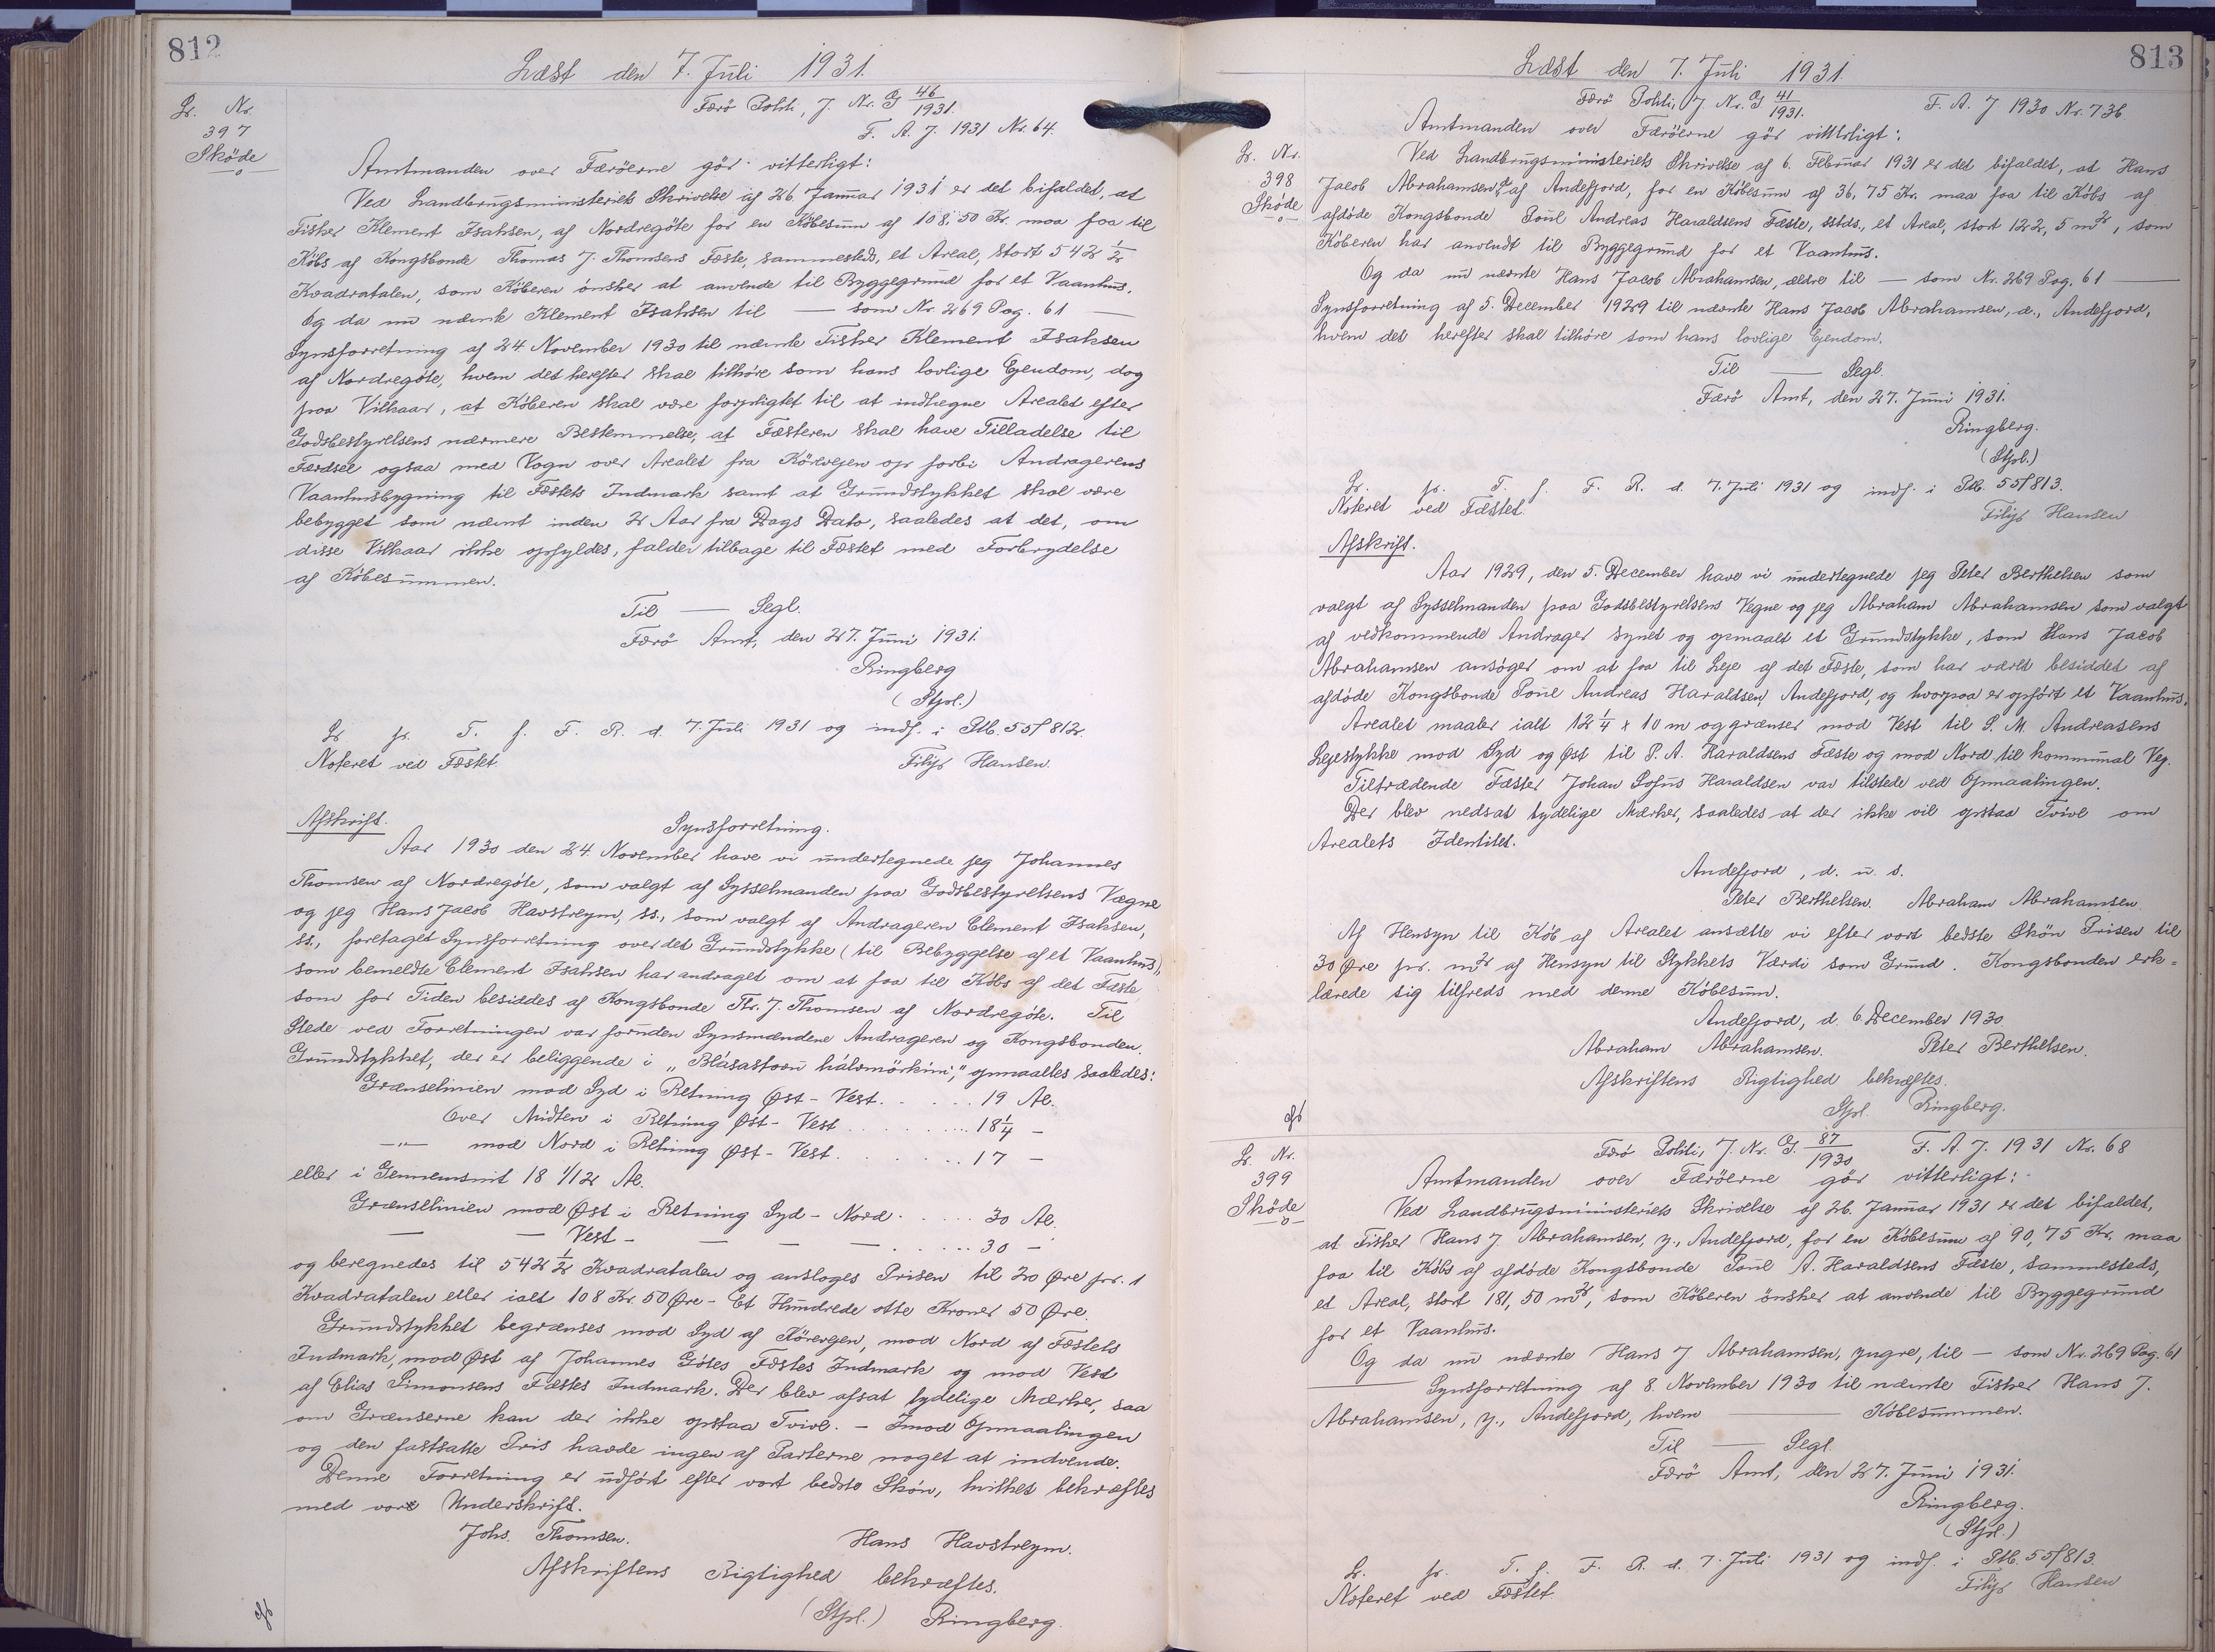 812
Læst den 7. Juli 1931.
Færö Politi, J. Nr. G 46/1931.
F. A. J. 1931 Nr. 64.
Lb. Nr.
397
Sköde
Amtmanden over Færöerne gör vitterligt:
Ved Landbrugsministeriets Skrivelse af 26. Januar 1931 er det bifaldet, at
Fisker Klement Isaksen, af Nordregöte for en Köbesum af 108,50 Kr. maa faa til
Köbs af Kongsbonde Thomas J. Thomsens Fæste, sammesteds, et Areal, stort 542 1/2
Kvadratalen, som Köberen önsker at anvende til Byggegrund for et Vaanhus.
Og da nu nævnte Klement Isaksen til — som Nr. 269 Pag. 61 —
Synsforretning af 24. November 1930 til nævnte Fisker Klement Isaksen
af Nordregöte, hvem det herefter skal tilhöre som hans lovlige Ejendom, dog
paa Vilkaar, at Köberen skal være forpligtet til at indhegne Arealet efter
Godsbestyrelsens nærmere Bestemmelse, at Fæsteren skal have Tilladelse til
Færdsel ogsaa med Vogn over Arealet fra Körevejen op forbi Andragerens
Vaanhusbygning til Fæstets Indmark samt at Grundstykket skal være
bebygget som nævnt inden 2 Aar fra Dags Dato, saaledes at det, om
disse Vilkaar ikke opfyldes, falder tilbage til Fæstet med Forbrydelse
af Köbesummen.
Til — Segl.
Færö Amt, den 27. Juni 1931.
Ringberg
(Stpl.)
Lb. p. T. f. F. R. d. 7. Juli 1931 og indf. i Stb. 55/812.
Noteret ved Fæstet.
Filip Hansen.
Afskrift.
Synsforretning.
Aar 1930 den 24. November have vi undertegnede jeg Johannes
Thomsen af Nordregöte, som valgt af Sysselmanden paa Godsbestyrelsens Vegne
og jeg Hans Jacob Havstreym, ss., som valgt af Andrageren Clement Isaksen,
ss., foretaget Synsforretning over det Grundstykke (til Bebyggelse af et Vaanhus),
som bemeldte Clement Isaksen har andraget om at faa til Köbs af det Fæste
som for Tiden besiddes af Kongsbonde Th. J. Thomsen af Nordregöte. Til
Stede ved Forretningen var foruden Synsmændene Andrageren og Kongsbonden.
Grundstykket, der er beliggende i „Blásastovu hálvmörkini," opmaaltes saaledes:
Grænselinien mod Syd i Retning Øst - Vest . . . . . 19 Al.
Over Midten i Retning Øst - Vest . . . . . 18 1/4 -
—"— mod Nord i Retning Øst - Vest . . . . . 17 -
eller i Gennemsnit 18 1/12 Al.
Grænselinien mod Øst i Retning Syd - Nord . . . . . 30 Al.
— — Vest - — — — . . . . . 30 -
og beregnedes til 542 1/2 Kvadratalen og ansloges Prisen til 20 Øre pr. 1
Kvadratalen eller ialt 108 Kr. 50 Øre - Et Hundrede otte Kroner 50 Øre.
Grundstykket begrænses mod Syd af Körevejen, mod Nord af Fæstets
Indmark, mod Øst af Johannes Götes Fæstes Indmark og mod Vest
af Elias Simonsens Fæstes Indmark. Der blev afsat tydelige Mærker, saa
om Grænserne kan der ikke opstaa Tvivl. - Imod Opmaalingen
og den fastsatte Pris havde ingen af Parterne noget at indvende.
Denne Forretning er udfört efter vort bedste Skön, hvilket bekræftes
med vore Underskrift.
Johs. Thomsen.
Hans Havstreym.
Afskriftens Rigtighed bekræftes.
(Stpl.) Ringberg.
813
Læst den 7. Juli 1931.
Færö Politi, J. Nr. G 41/1931.
F. A. J 1930 Nr. 736
Lb. Nr.
398
Sköde
Amtmanden over Færöerne gör vitterligt:
Ved Landbrugsministeriets Skrivelse af 6. Februar 1931 er det bifaldet, at Hans
Jacob Abrahamsen, af Andefjord, for en Köbesum af 36,75 Kr. maa faa til Köbs af
afdöde Kongsbonde Poul Andreas Haraldsens Fæste, sstds., et Areal, stort 122,5 m2, som
Köberen har anvendt til Byggegrund for et Vaanhus.
Og da nu nævnte Hans Jacob Abrahamsen, ældre til — som Nr. 269 Pag. 61 —
Synsforretning af 5. December 1929 til nævnte Hans Jacob Abrahamsen, æ., Andefjord,
hvem det herefter skal tilhöre som hans lovlige Ejendom.
Til — Segl.
Færö Amt, den 27. Juni 1931.
Ringberg.
(Stpl.)
Lb. p. T. f. F. R. d. 7. Juli 1931 og indf. i Stb. 55/813.
Noteret ved Fæstet.
Filip Hansen
Afskrift.
Aar 1929, den 5. December have vi undertegnede jeg Peter Berthelsen som
valgt af Sysselmanden paa Godsbestyrelsens Vegne og jeg Abraham Abrahamsen som valgt
af vedkommende Andrager synet og opmaalt et Grundstykke, som Hans Jacob
Abrahamsen ansöger om at faa til Leje af det Fæste, som har været besiddet af
afdöde Kongsbonde Poul Andreas Haraldsen, Andefjord, og hvorpaa er opfört et Vaanhus.
Arealet maaler ialt 12 1/4 x 10 m og grænser mod Vest til S. M. Andreasens
Lejestykke mod Syd og Øst til P. A. Haraldsens Fæste og mod Nord til kommunal Vej.
Tiltrædende Fæster Johan Sofus Haraldsen var tilstede ved Opmaalingen.
Der blev nedsat tydelige Mærker, saaledes at der ikke vil opstaa Tvivl om
Arealets Identitet.
Andefjord, d. u. s.
Peter Berthelsen. Abraham Abrahamsen.
Af Hensyn til Köb af Arealet ansætte vi efter vort bedste Skön Prisen til
30 Øre pr. m2 af Hensyn til Stykkets Værdi som Grund. Kongsbonden erk=
lærede sig tilfreds med denne Köbesum.
Andefjord, d. 6 December 1930
Abraham Abrahamsen. Peter Berthelsen.
Afskriftens Rigtighed bekræftes.
Stpl. Ringberg.
Færö Politi, J. Nr. G. 87/1930
F. A. J. 1931 Nr. 68
Lb. Nr.
399
Sköde
Amtmanden over Færöerne gör vitterligt:
Ved Landbrugsministeriets Skrivelse af 26. Januar 1931 er det bifaldet,
at Fisker Hans J. Abrahamsen, y., Andefjord, for en Köbesum af 90,75 Kr. maa
faa til Köbs af afdöde Kongsbonde Poul A. Haraldsens Fæste, sammesteds,
et Areal, stort 181,50 m2, som Köberen önsker at anvende til Byggegrund
for et Vaanhus.
Og da nu nævnte Hans J Abrahamsen, yngre, til — som Nr. 269 Pag. 61
— Synsforretning af 8. November 1930 til nævnte Fisker Hans J.
Abrahamsen, y., Andefjord, hvem — Köbesummen.
Til — Segl.
Færö Amt, den 27. Juni 1931.
Ringberg.
(Stpl.)
Lb. p. T. f. F. R. d. 7. Juli 1931 og indf. i Stb. 55/813.
Noteret ved Fæstet.
Filip Hansen